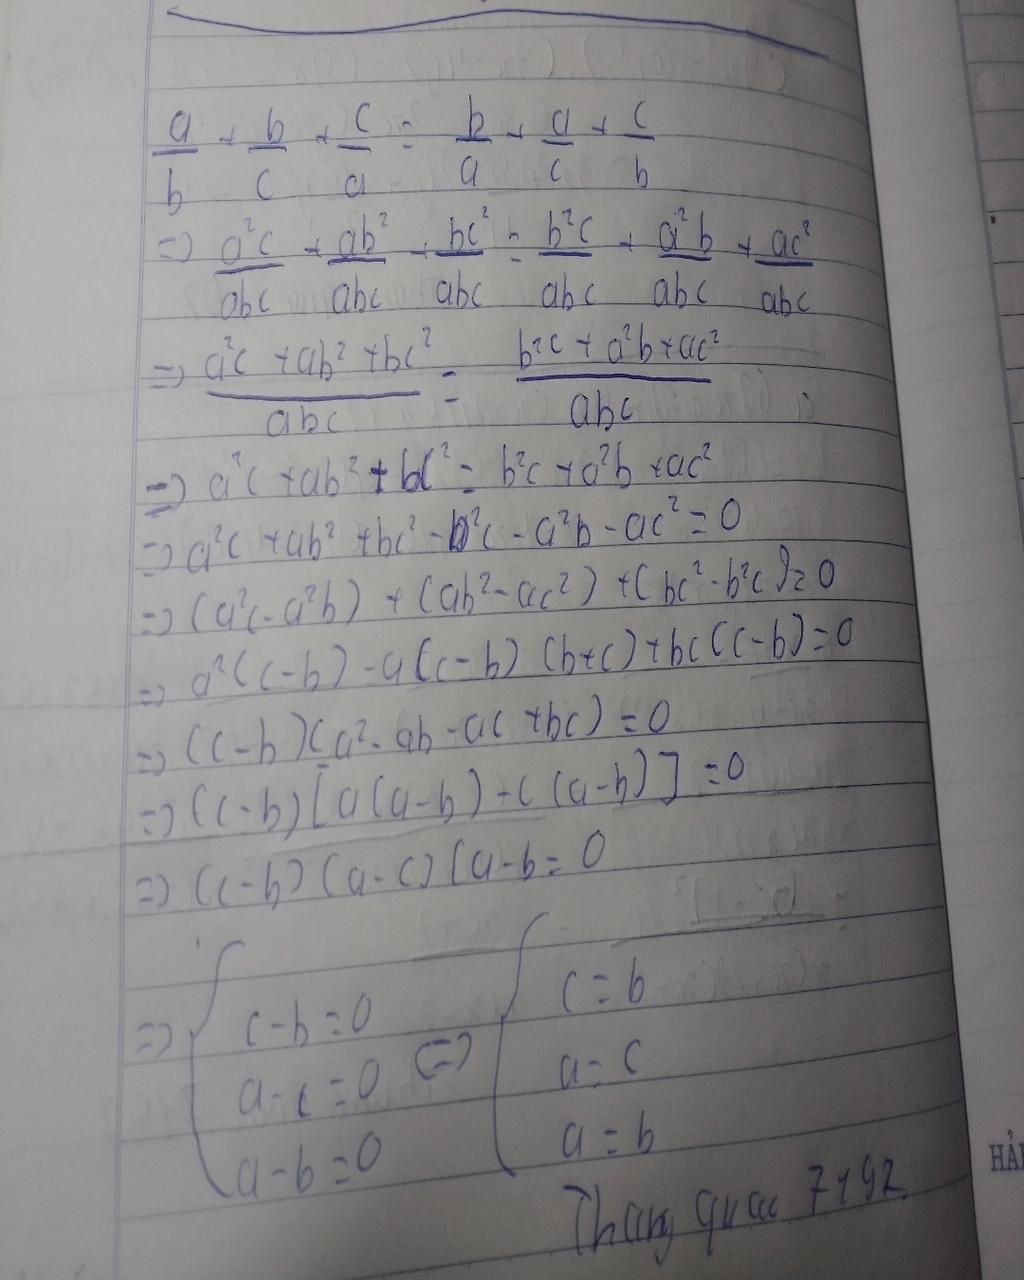 a/b + b/c + c/a = b/a + a/c + c/b
=> a²c/abc + ab²/abc + bc²/abc = b²c/abc + a²b/abc + ac²/abc
=> (a²c + ab² + bc²)/abc = (b²c + a²b + ac²)/abc
=> a²c + ab² + bc² = b²c + a²b + ac²
=> a²c + ab² + bc² - b²c - a²b - ac² = 0
=> (a²c - a²b) + (ab² - ac²) + (bc² - b²c) = 0
=> a²(c-b) - a(c-b)(b+c) + bc(c-b) = 0
=> (c-b)(a² - ab - ac + bc) = 0
=> (c-b)[a(a-b) - c(a-b)] = 0
=> (c-b)(a-c)(a-b = 0
=> { c-b=0 <=> { c=b
a-c=0 a=c
a-b=0 a=b
7192
HẢI